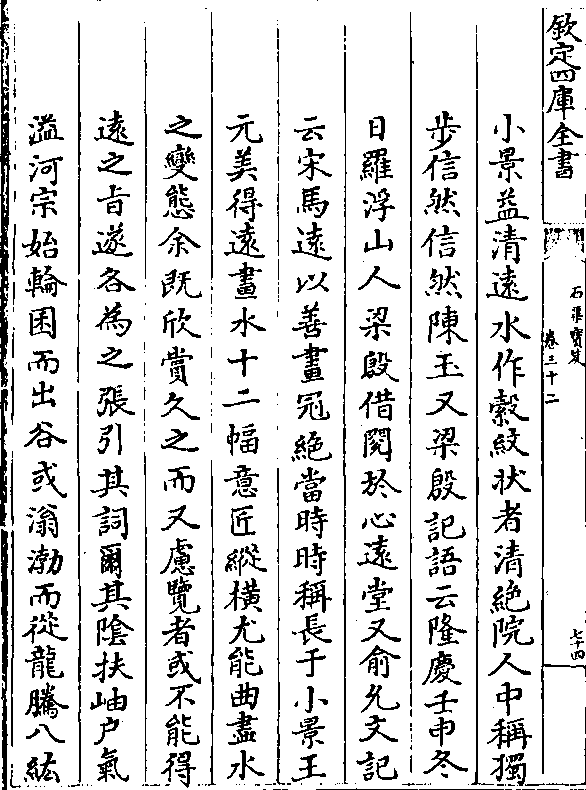 欽定四庫全書
石渠寶笈
卷三十二
七十四
小景益清遠水作縠紋狀者清絶院人中稱獨
步信然信然陳玉又梁殷記語云隆慶壬申冬
日羅浮山人梁殷借閲於心遠堂又俞允文記
云宋馬遠以善畫冠絶當時時稱長于小景王
元美得遠畫水十二幅意匠縱横尤能曲盡水
之變態余既欣賞久之而又慮覽者或不能得
遠之旨遂各為之張引其詞爾其陰扶岫户氣
溢河宗始輪囷而出谷或滃渤而從龍騰八紘